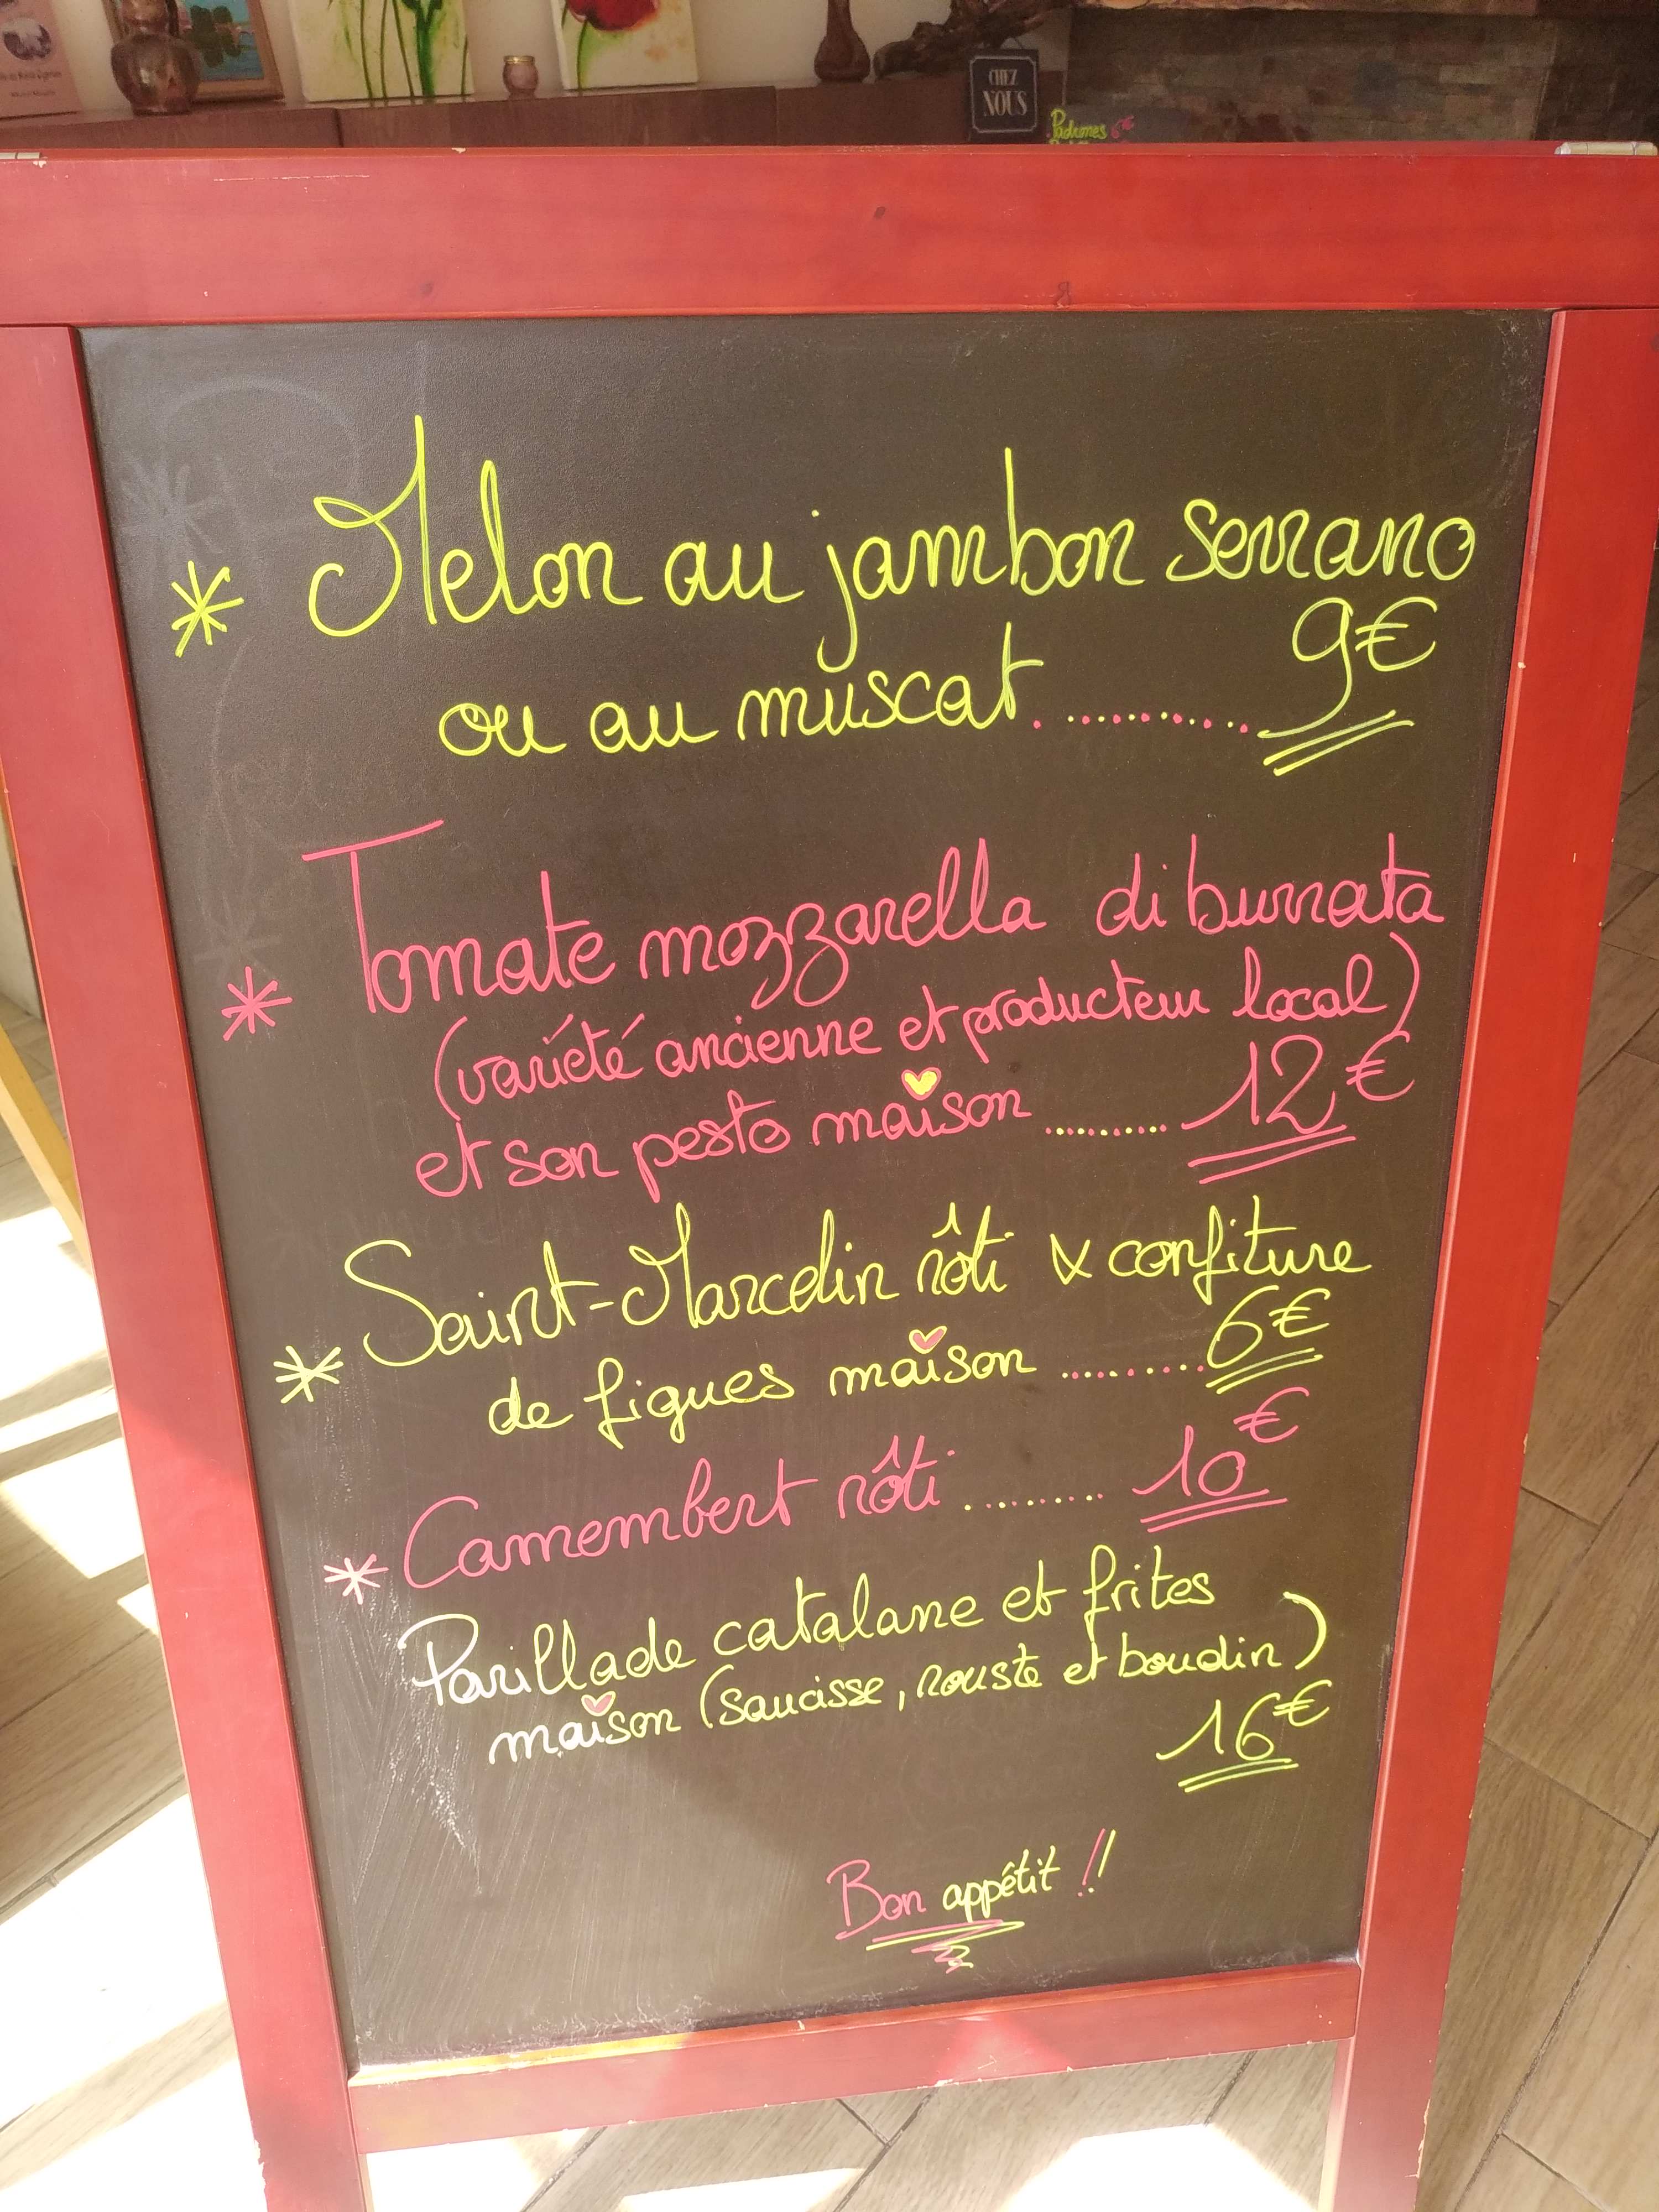 CHEZ
NOUS
Padrones 6€
* Melon au jambon serrano
ou au muscat............ 9€
* Tomate mozzarella di burrata
(variété ancienne et producteur local)
et son pesto maison .......... 12€
* Saint-Marcelin rôti & confiture
de figues maison .......... 6€
* Camembert rôti .......... 10€
Parillade catalane et frites
maison (saucisse, rouste et boudin)
16€
Bon appétit !!